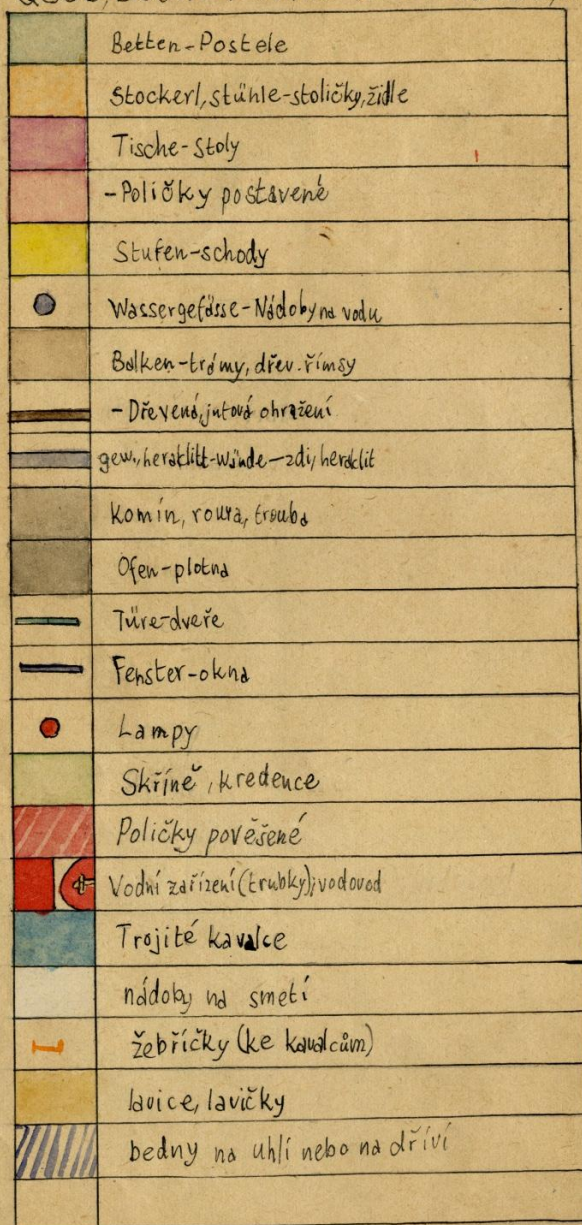 Betten-Postele
Stockerl, stühle-stoličky, židle
Tische-stoly
-Poličky postavené
Stufen-schody
Wassergefässe-Nádoby na vodu
Balken-trámy, dřev. římsy
-Dřevená, jutová ohražení
gew., heraklitt-wände-zdi, heraklit
komín, roura, trouba
Ofen-plotna
Türe-dveře
Fenster-okna
Lampy
Skříně, kredence
Poličky pověšené
Vodní zařízení (trubky); vodovod
Trojité kavalce
nádoby na smetí
žebříčky (ke kavalcům)
lavice, lavičky
bedny na uhlí nebo na dříví